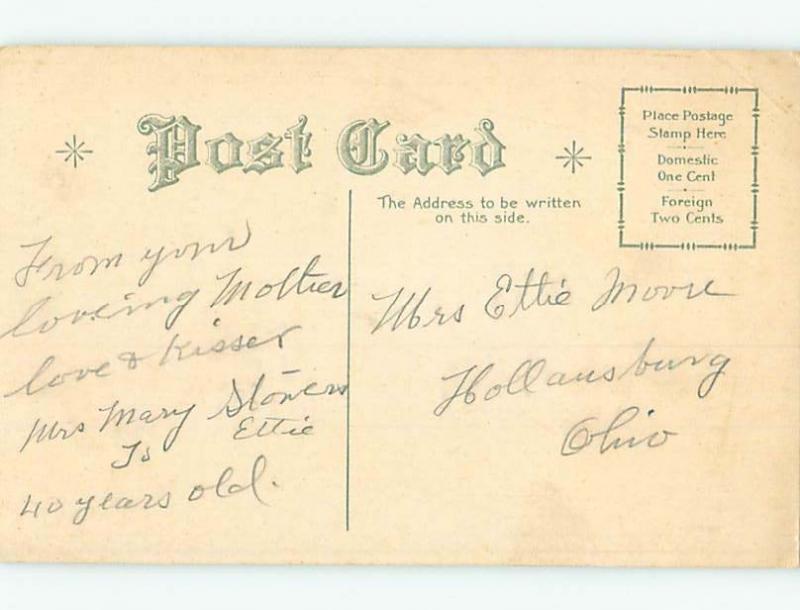 Post Card
Place Postage
Stamp Here
Domestic
One Cent
Foreign
Two Cents
The Address to be written
on this side.
From your
loveing Mother
love & Kisses
Mrs Mary Stovers
To Ettie
40 years old.
Mrs Ettie Moore
Hollansburg
Ohio